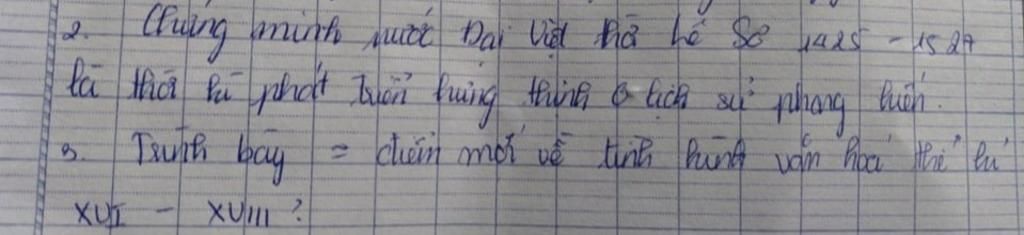 2. Chứng minh nước Đại Việt thời Lê Sơ 1425 - 1527
là thời kì phát triển hưng thịnh ở lịch sử phong kiến.
3. Trình bày = điểm mới về tình hình văn hoá thế kỉ
XVI - XVIII ?